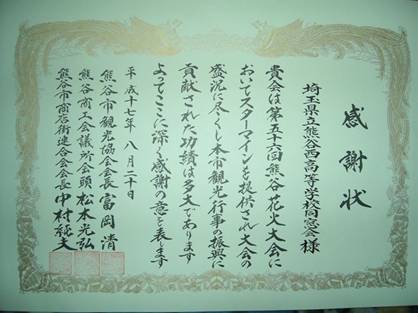 感謝状
埼玉県立熊谷西高等学校同窓会様
貴会は第五十六回熊谷花火大会に
おいてスターマインを提供され大会の
盛況に尽くし本市観光行事の振興に
貢献された功績は多大であります
よってここに深く感謝の意を表します
平成十七年八月二十日
熊谷市観光協会会長 富岡清
熊谷商工会議所会頭 松本光弘
熊谷市商店街連合会会長 中村